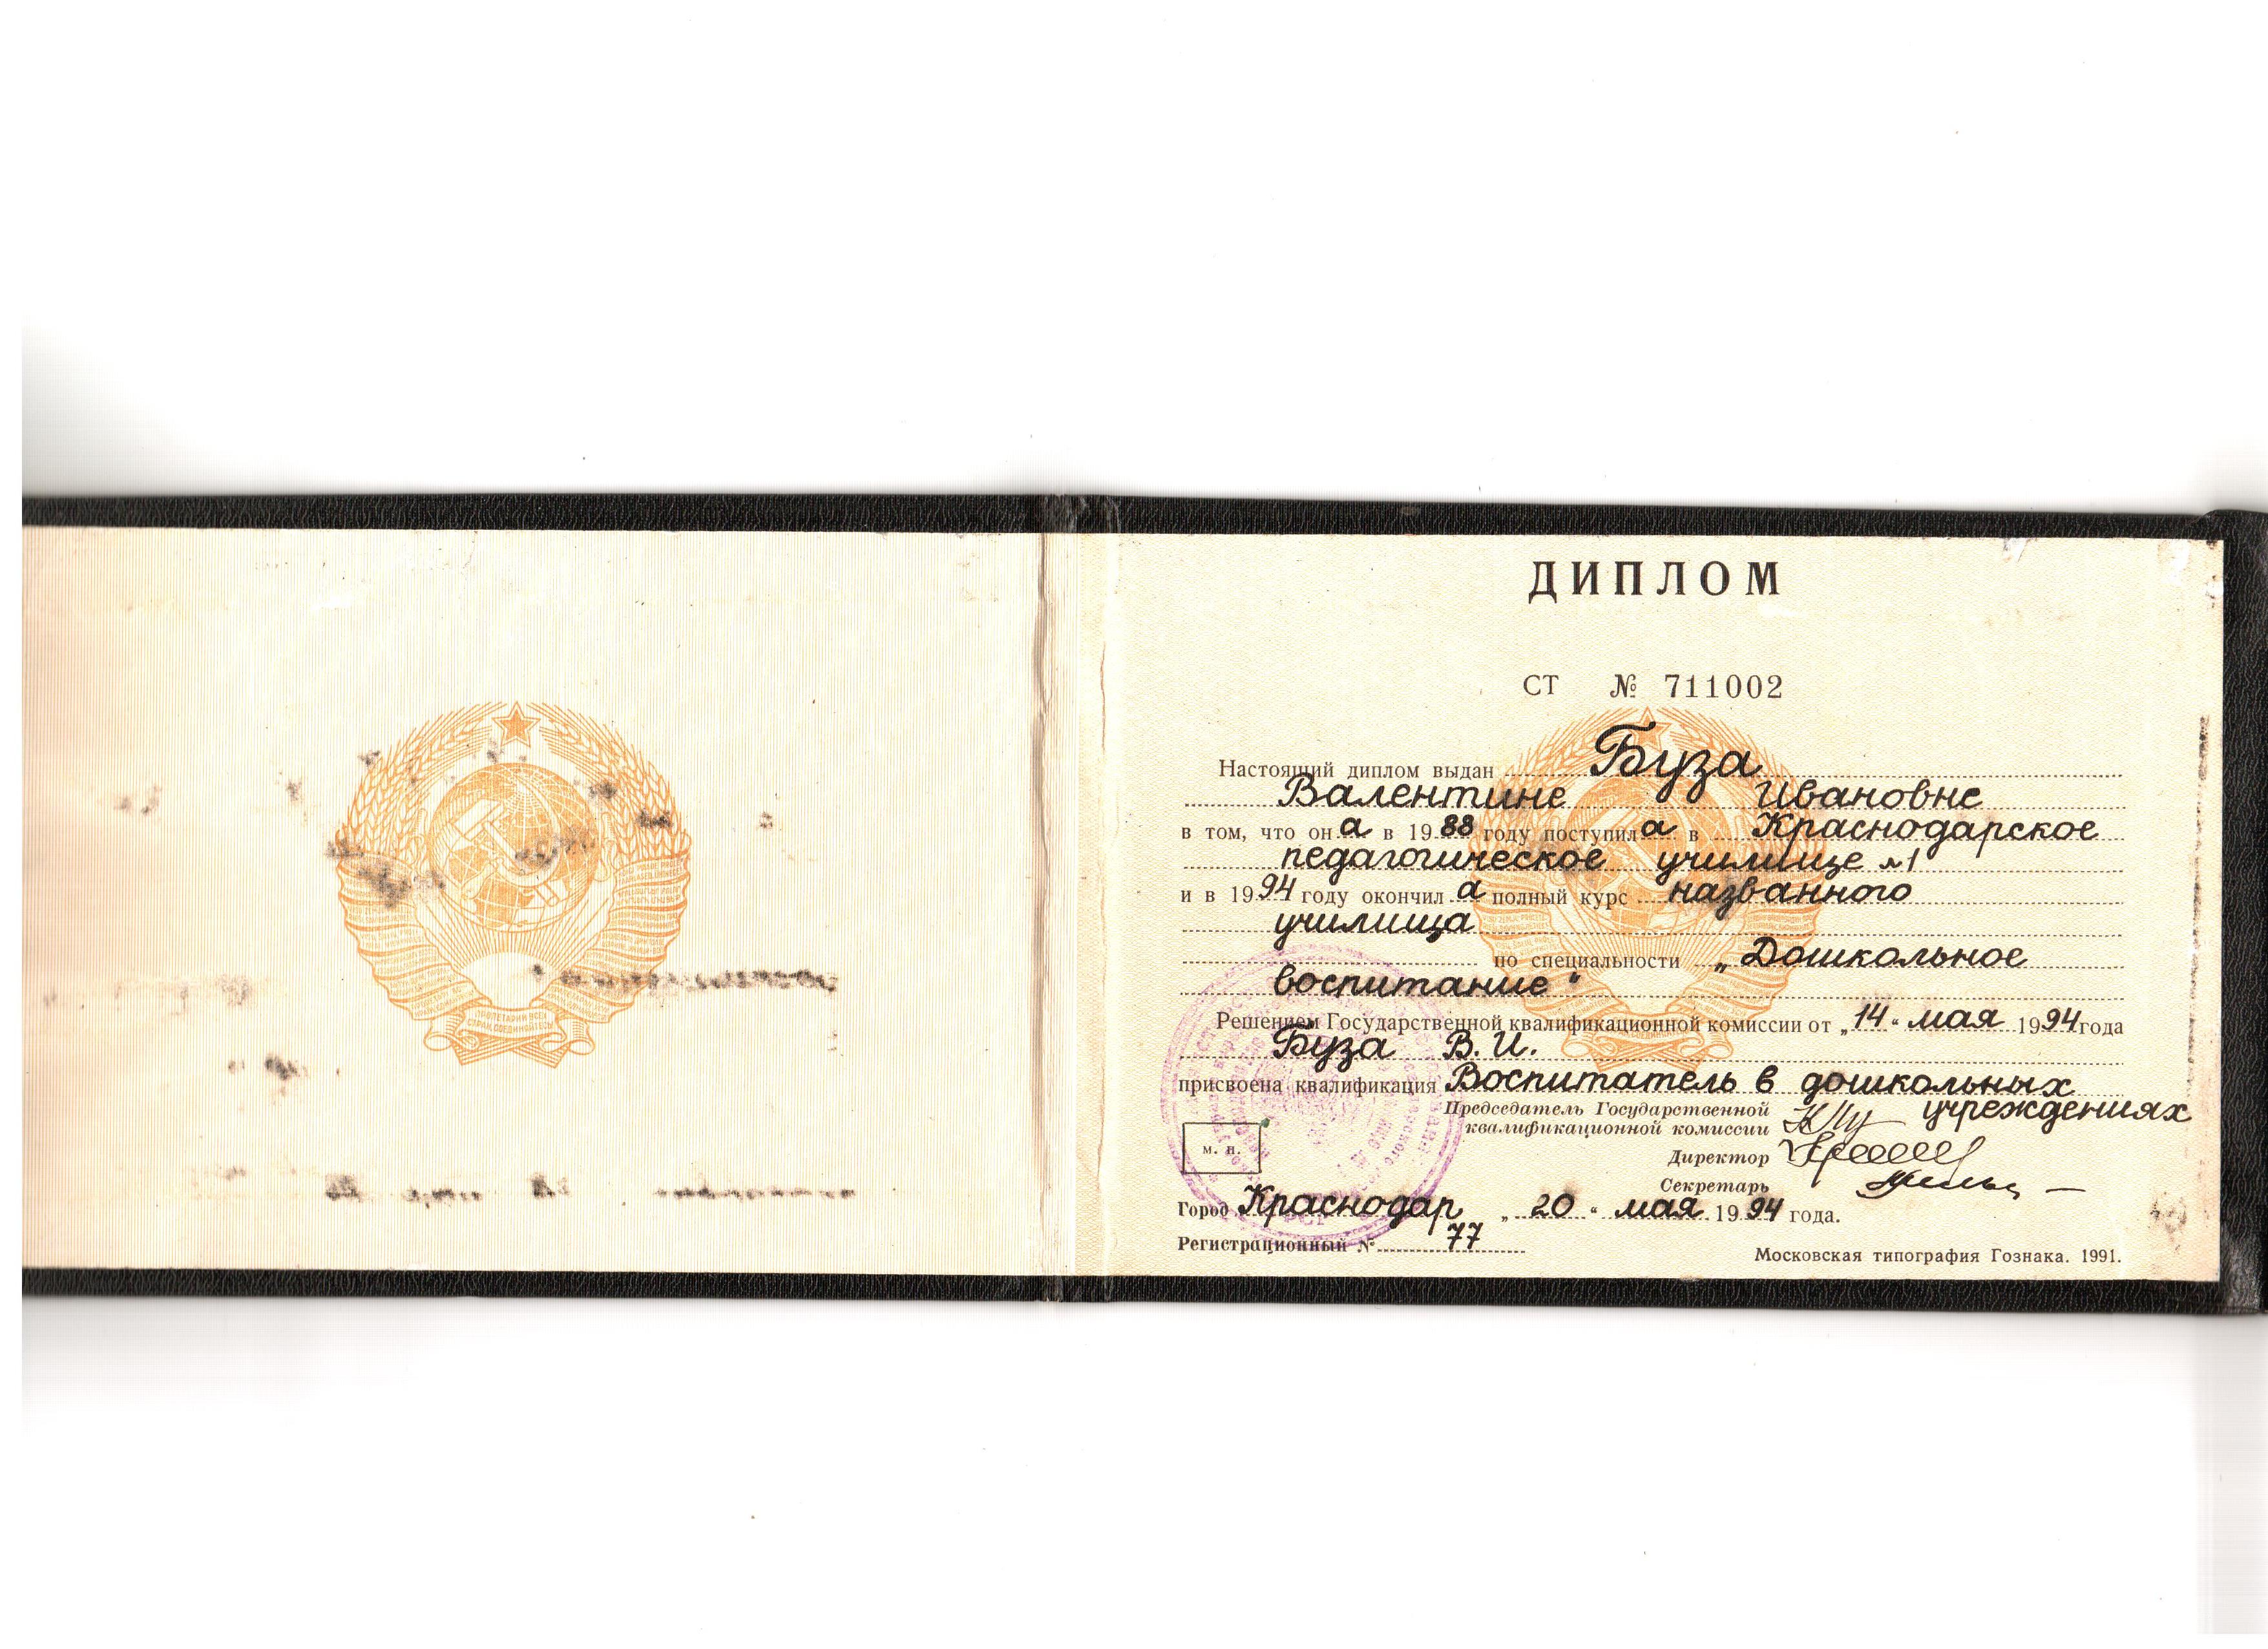 ДИПЛОМ
СТ № 711002
Настоящий диплом выдан Буза
Валентине Ивановне
в том, что она в 1988 году поступила в Краснодарское
педагогическое училище №1
и в 1994 году окончила полный курс названного
училища
по специальности „Дошкольное
воспитание“
Решением Государственной квалификационной комиссии от „14“ мая 1994 года
Буза В. И.
присвоена квалификация Воспитатель в дошкольных
учреждениях
Председатель Государственной
квалификационной комиссии
Директор
м. п.
Секретарь
Город Краснодар „20“ мая 1994 года.
Регистрационный № 77
Московская типография Гознака. 1991.
ПРОЛЕТАРИИ ВСЕХ
СТРАН, СОЕДИНЯЙТЕСЬ!